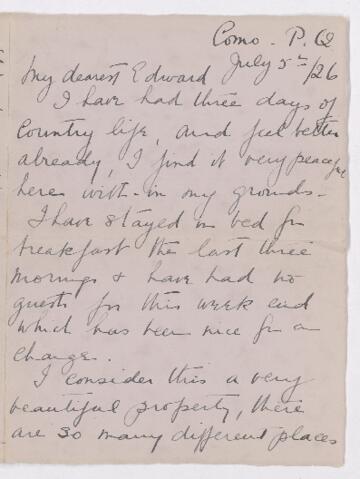 Como. P.Q
July 5th/26
My dearest Edward
I have had three days of
country life, and feel better
already, I find it very peaceful
here with-in my grounds -
I have stayed in bed for
breakfast the last three
mornings & have had no
guests for this week end
which has been nice for a
change.
I consider this a very
beautiful property, there
are so many different places